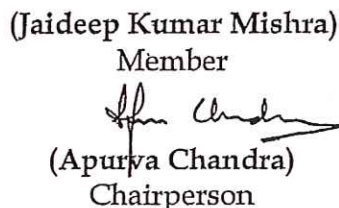 (Jaideep Kumar Mishra)
Member
(Apurva Chandra)
Chairperson